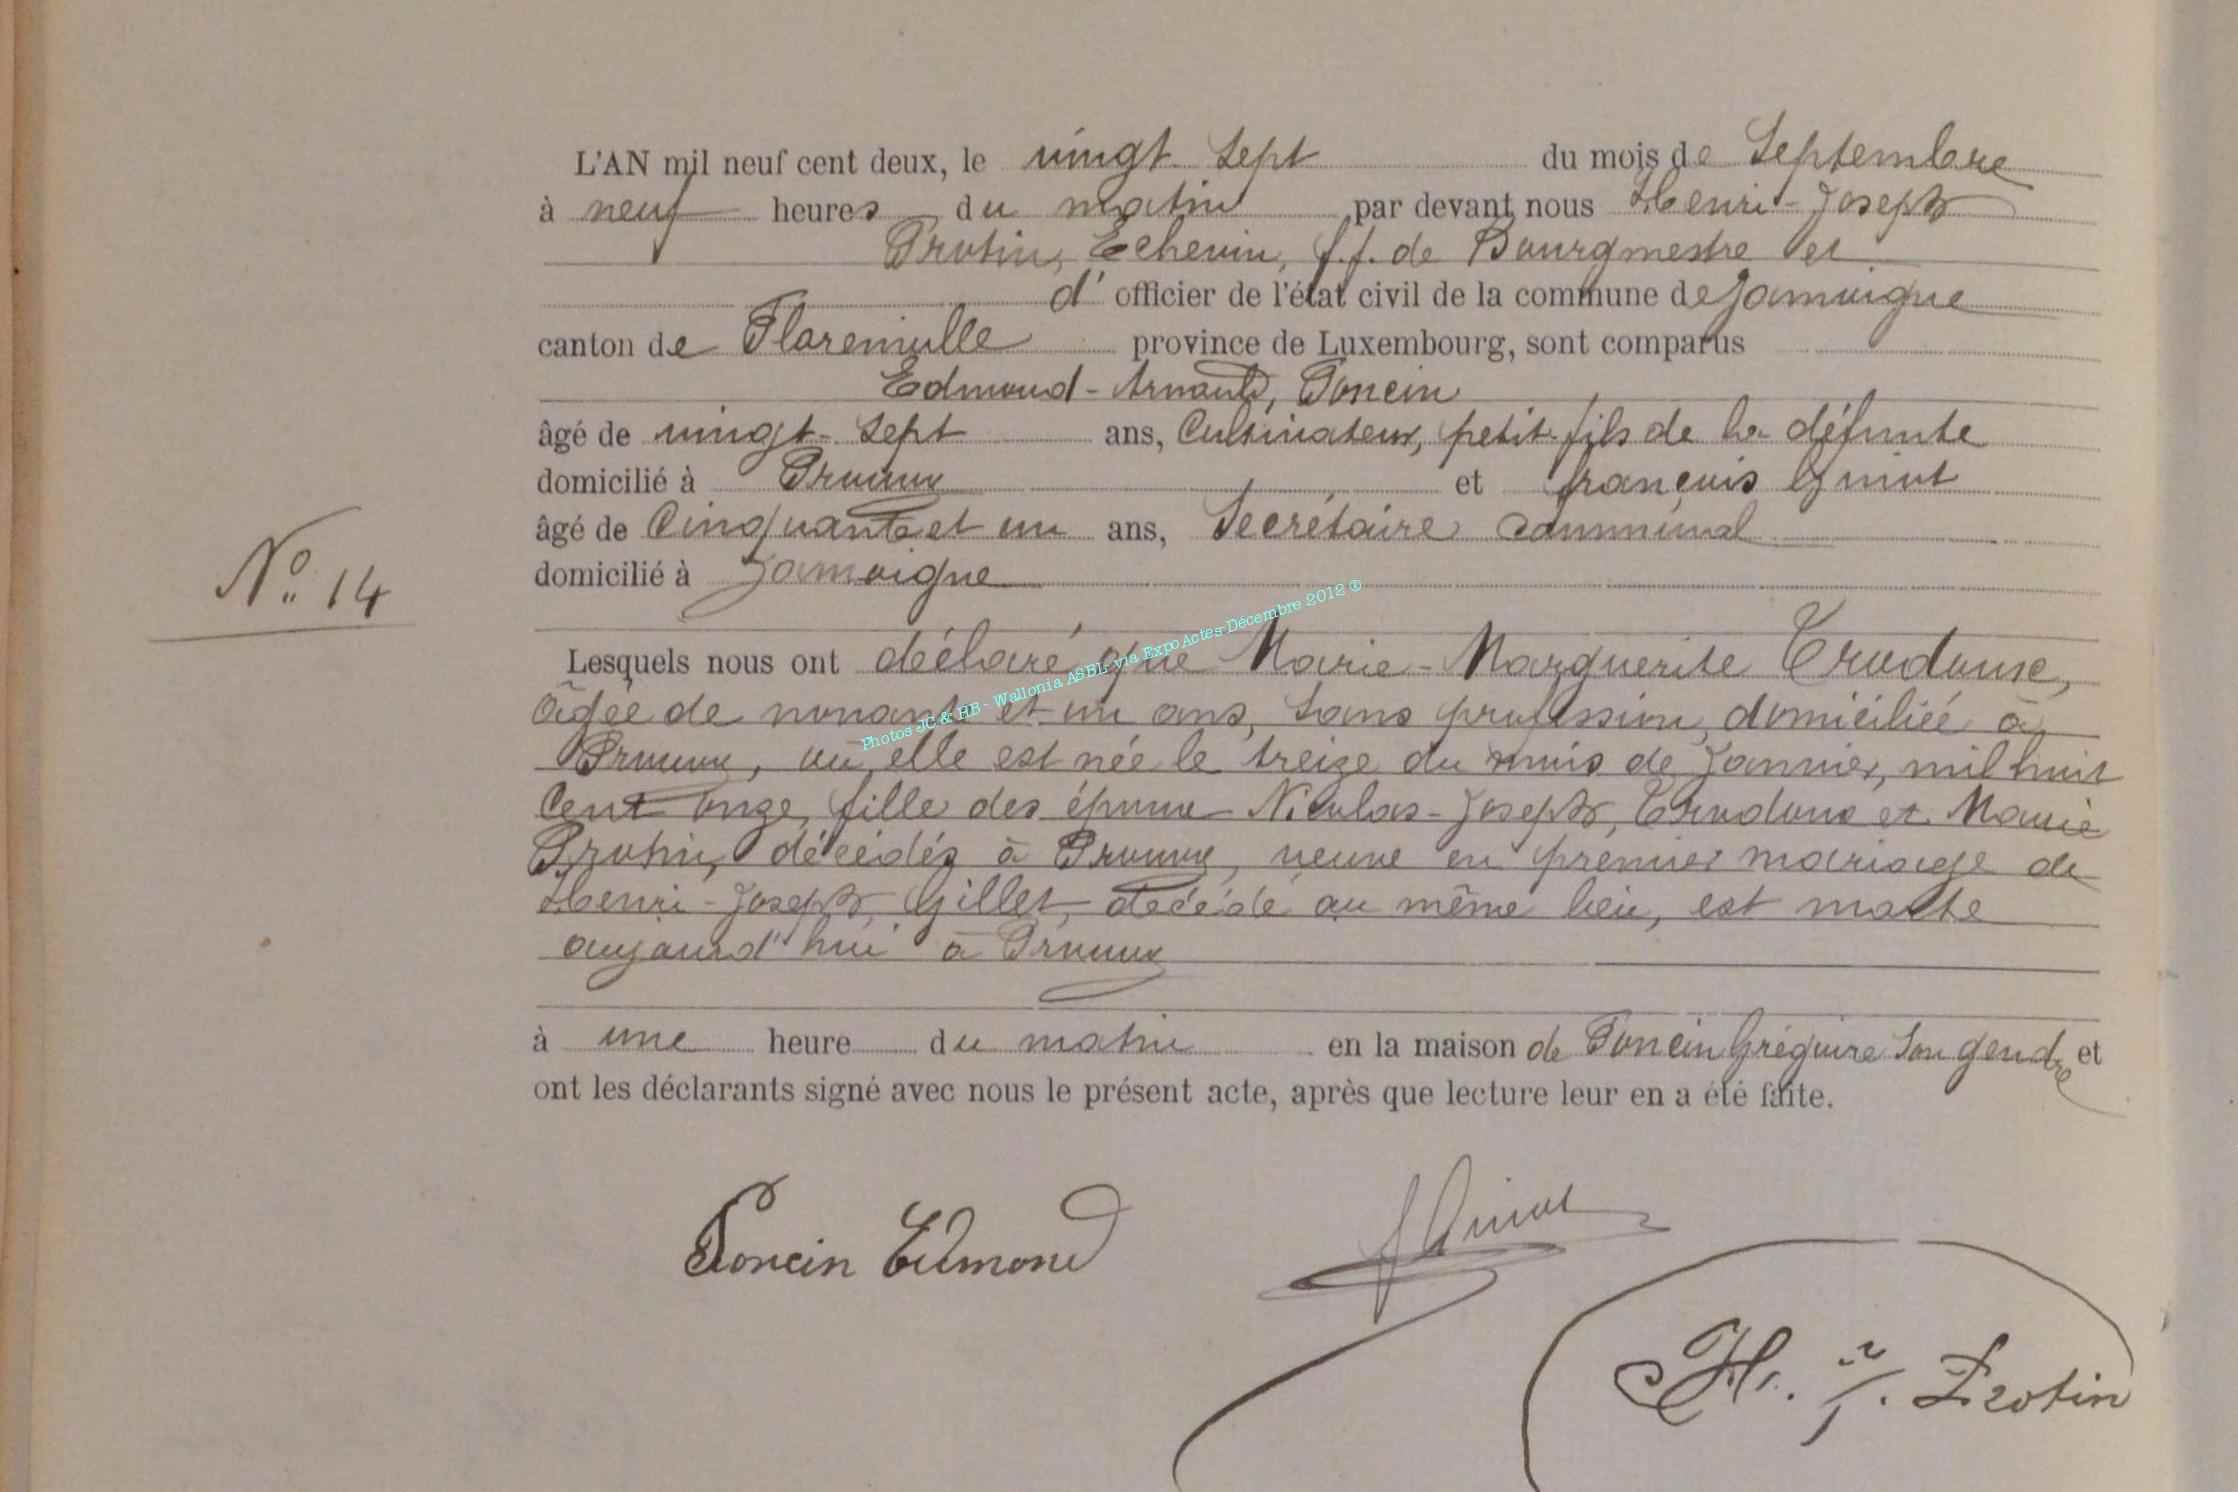 L'AN mil neuf cent deux, le vingt sept du mois de Septembre
à neuf heures du matin par devant nous Henri-Joseph
Protin, Echevin, f.f. de Bourgmestre et
d'officier de l'état civil de la commune de Jamoigne
canton de Florenville province de Luxembourg, sont comparus
Edmond-Arnould, Poncin
âgé de vingt-sept ans, Cultivateur, petit-fils de la défunte
domicilié à Prouvy et françois Guiot
âgé de Cinquante et un ans, Secrétaire communal
domicilié à Jamoigne
No. 14
Lesquels nous ont déclaré que Marie-Marguerite Crudoune,
âgée de nonante et un ans, sans profession, domiciliée à
Prouvy, où elle est née le treize du mois de Janvier, mil huit
Cent onze, fille des époux Nicolas-Joseph, et Marie
Protin, décédés à Prouvy, veuve en premier mariage de
Henri-Joseph Gillet, décédé au même lieu, est morte
aujourd'hui à Prouvy
à une heure du matin en la maison de Poncin Grégoire son gendre et
ont les déclarants signé avec nous le présent acte, après que lecture leur en a été faite.
Photos JC & HB - Wallonia ASBL- via ExpoActes-Décembre 2012 ®
Poncin Edmond
f Guiot
H. J. Protin